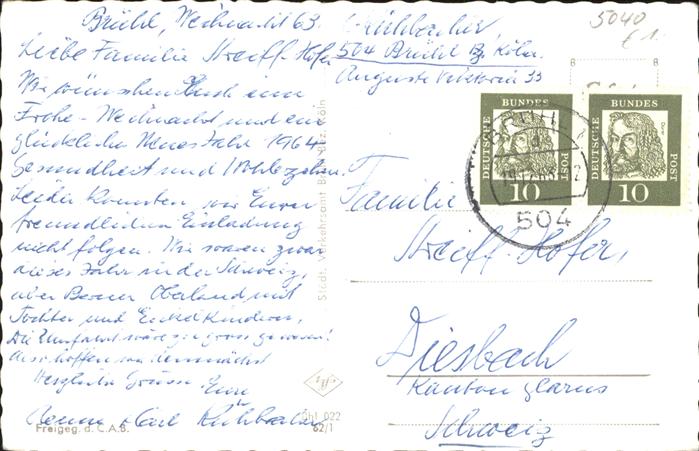 Brühl, Weihnacht 63.
Liebe Familie Streiff-Hofer
Wir wünschen Euch eine
Frohe - Weihnacht und ein
glückliches Neues Jahr 1964
Gesundheit und Wohlergehen.
Leider konnten wir Eurer
freundlichen Einladung
nicht folgen. Wir waren zwar
dieses Jahr in der Schweiz,
aber Berner Oberland mit
Tochter und Enkelkindern,
Die Umfahrt wäre zu gross gewesen!
Also hoffen wir demnächst
Herzliche Grüsse Eure
Karl
Freigeg. d. C.A.B.
022
62/1
Städt. Verkehrsamt Brühl Bez. Köln
504 Brühl Bz. Köln.
Auguste Viktoria 33
5040
DEUTSCHE BUNDES POST
10
DEUTSCHE BUNDES POST
10
BRÜHL
504
Familie
Streiff-Hofer,
Diesbach
Kanton Glarus
Schweiz